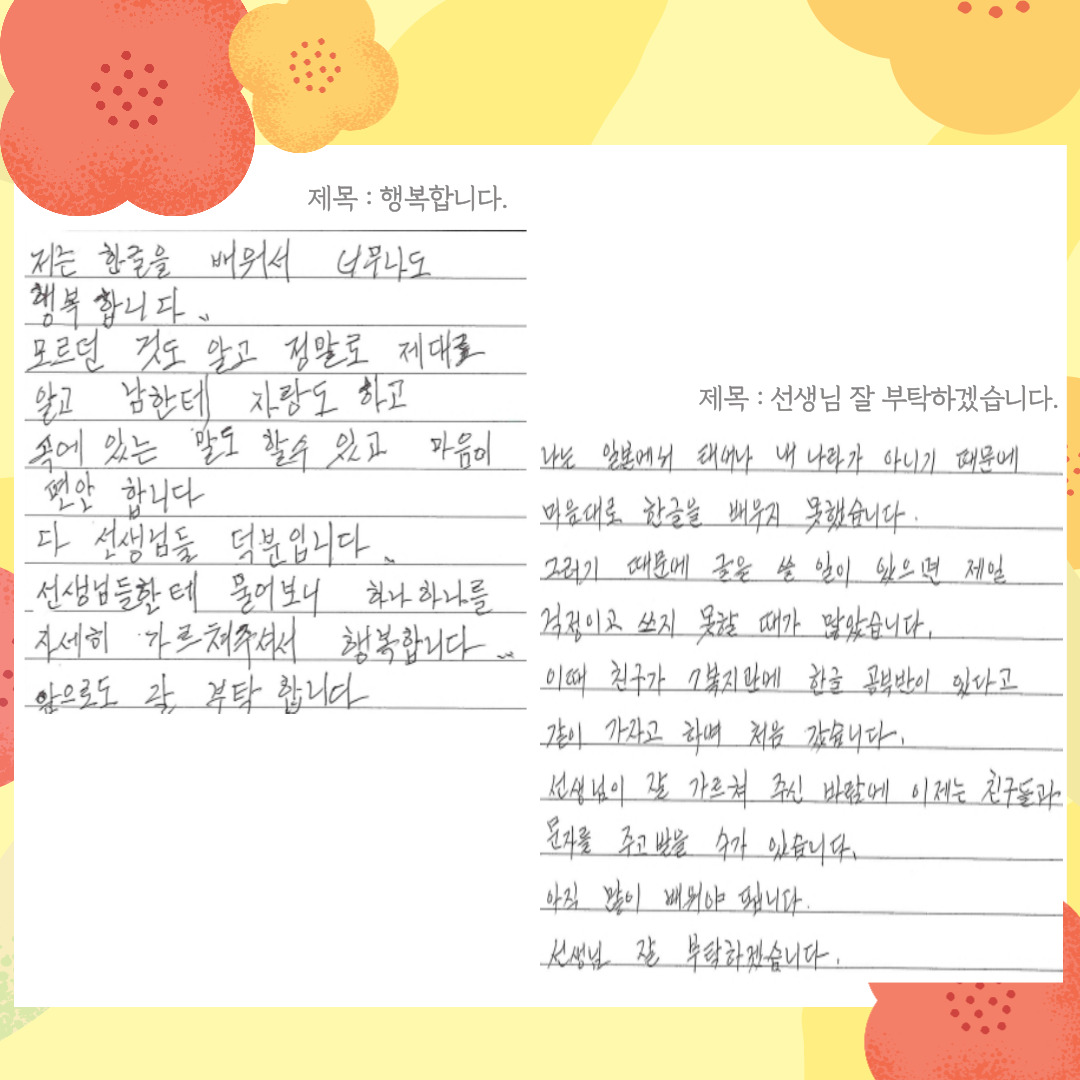 제목 : 행복합니다.
저는 한글을 배워서 너무나도
행복 합니다.
모르던 것도 알고 정말로 제대로
알고 남한테 자랑도 하고
속에 있는 말도 할수 있고 마음이
편안 합니다
다 선생님들 덕분입니다.
선생님들할테 물어보니 하나하나를
자세히 가르쳐주셔서 행복합니다..
앞으로도 잘 부탁 합니다
제목 : 선생님 잘 부탁하겠습니다.
나는 일본에서 태어나 내 나라가 아니기 때문에
마음대로 한글을 배우지 못했습니다.
그러기 때문에 글을 쓸 일이 있으면 제일
걱정이고 쓰지 못할 때가 많았습니다.
이때 친구가 기복지관에 한글 공부반이 있다고
같이 가자고 하며 처음 갔습니다.
선생님이 잘 가르쳐 주신 바람에 이제는 친구들과
문자를 주고받을 수가 있습니다.
아직 많이 배워야 됩니다.
선생님 잘 부탁하겠습니다.